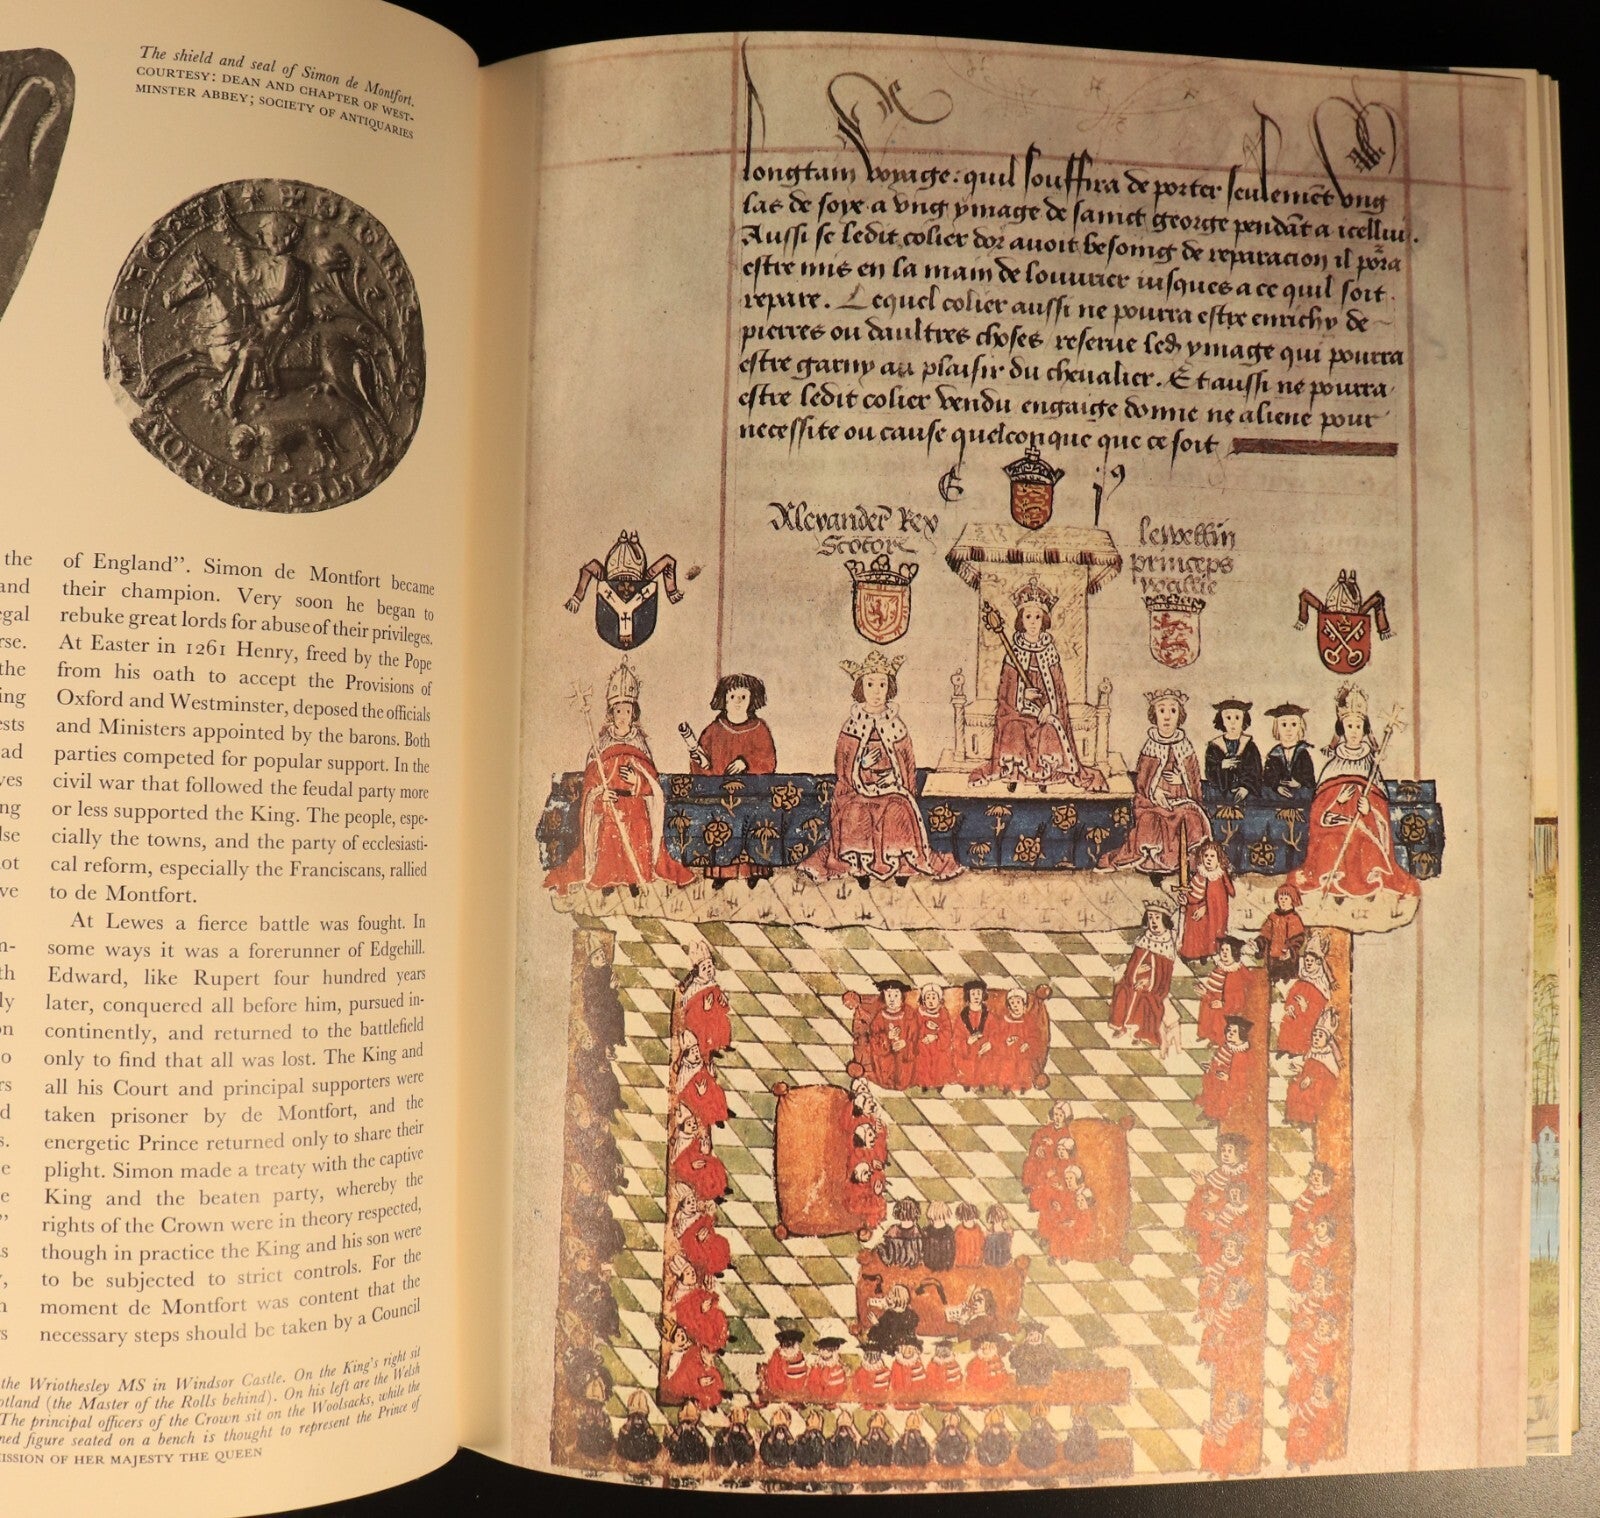 The shield and seal of Simon de Montfort.
COURTESY: DEAN AND CHAPTER OF WEST-
MINSTER ABBEY; SOCIETY OF ANTIQUARIES
the
and
egal
rse.
the
ing
ests
ad
ves
ng
lse
not
ve
n-
th
ly
on
o
rs
d
s.
e
e
”
s
y,
n
rs
of England”. Simon de Montfort became
their champion. Very soon he began to
rebuke great lords for abuse of their privileges.
At Easter in 1261 Henry, freed by the Pope
from his oath to accept the Provisions of
Oxford and Westminster, deposed the officials
and Ministers appointed by the barons. Both
parties competed for popular support. In the
civil war that followed the feudal party more
or less supported the King. The people, espe-
cially the towns, and the party of ecclesiasti-
cal reform, especially the Franciscans, rallied
to de Montfort.
At Lewes a fierce battle was fought. In
some ways it was a forerunner of Edgehill.
Edward, like Rupert four hundred years
later, conquered all before him, pursued in-
continently, and returned to the battlefield
only to find that all was lost. The King and
all his Court and principal supporters were
taken prisoner by de Montfort, and the
energetic Prince returned only to share their
plight. Simon made a treaty with the captive
King and the beaten party, whereby the
rights of the Crown were in theory respected,
though in practice the King and his son were
to be subjected to strict controls. For the
moment de Montfort was content that the
necessary steps should be taken by a Council
the Wriothesley MS in Windsor Castle. On the King's right sit
otland (the Master of the Rolls behind). On his left are the Welsh
The principal officers of the Crown sit on the Woolsacks, while the
ned figure seated on a bench is thought to represent the Prince of
ISSION OF HER MAJESTY THE QUEEN
longtain voyage: quil souffira de porter seulement ung
las de soye a ung ymage de sainct george pendāt a icelluy.
Aussi se ledit colier dor avoit besoing de reparacion il porra
estre mis en la main de louurier iusques a ce quil soit
repare. Lequel colier aussi ne pourra estre enrichy de
pierres ou daultres choses reserve led ymage qui pourra
estre garny au plaisir du chevalier. Et aussi ne pourra
estre ledit colier vendu engaige donne ne aliene pour
necessite ou cause quelconque que ce soit
E
Alexander Rex
Scotore
lewellin
princeps
wallie